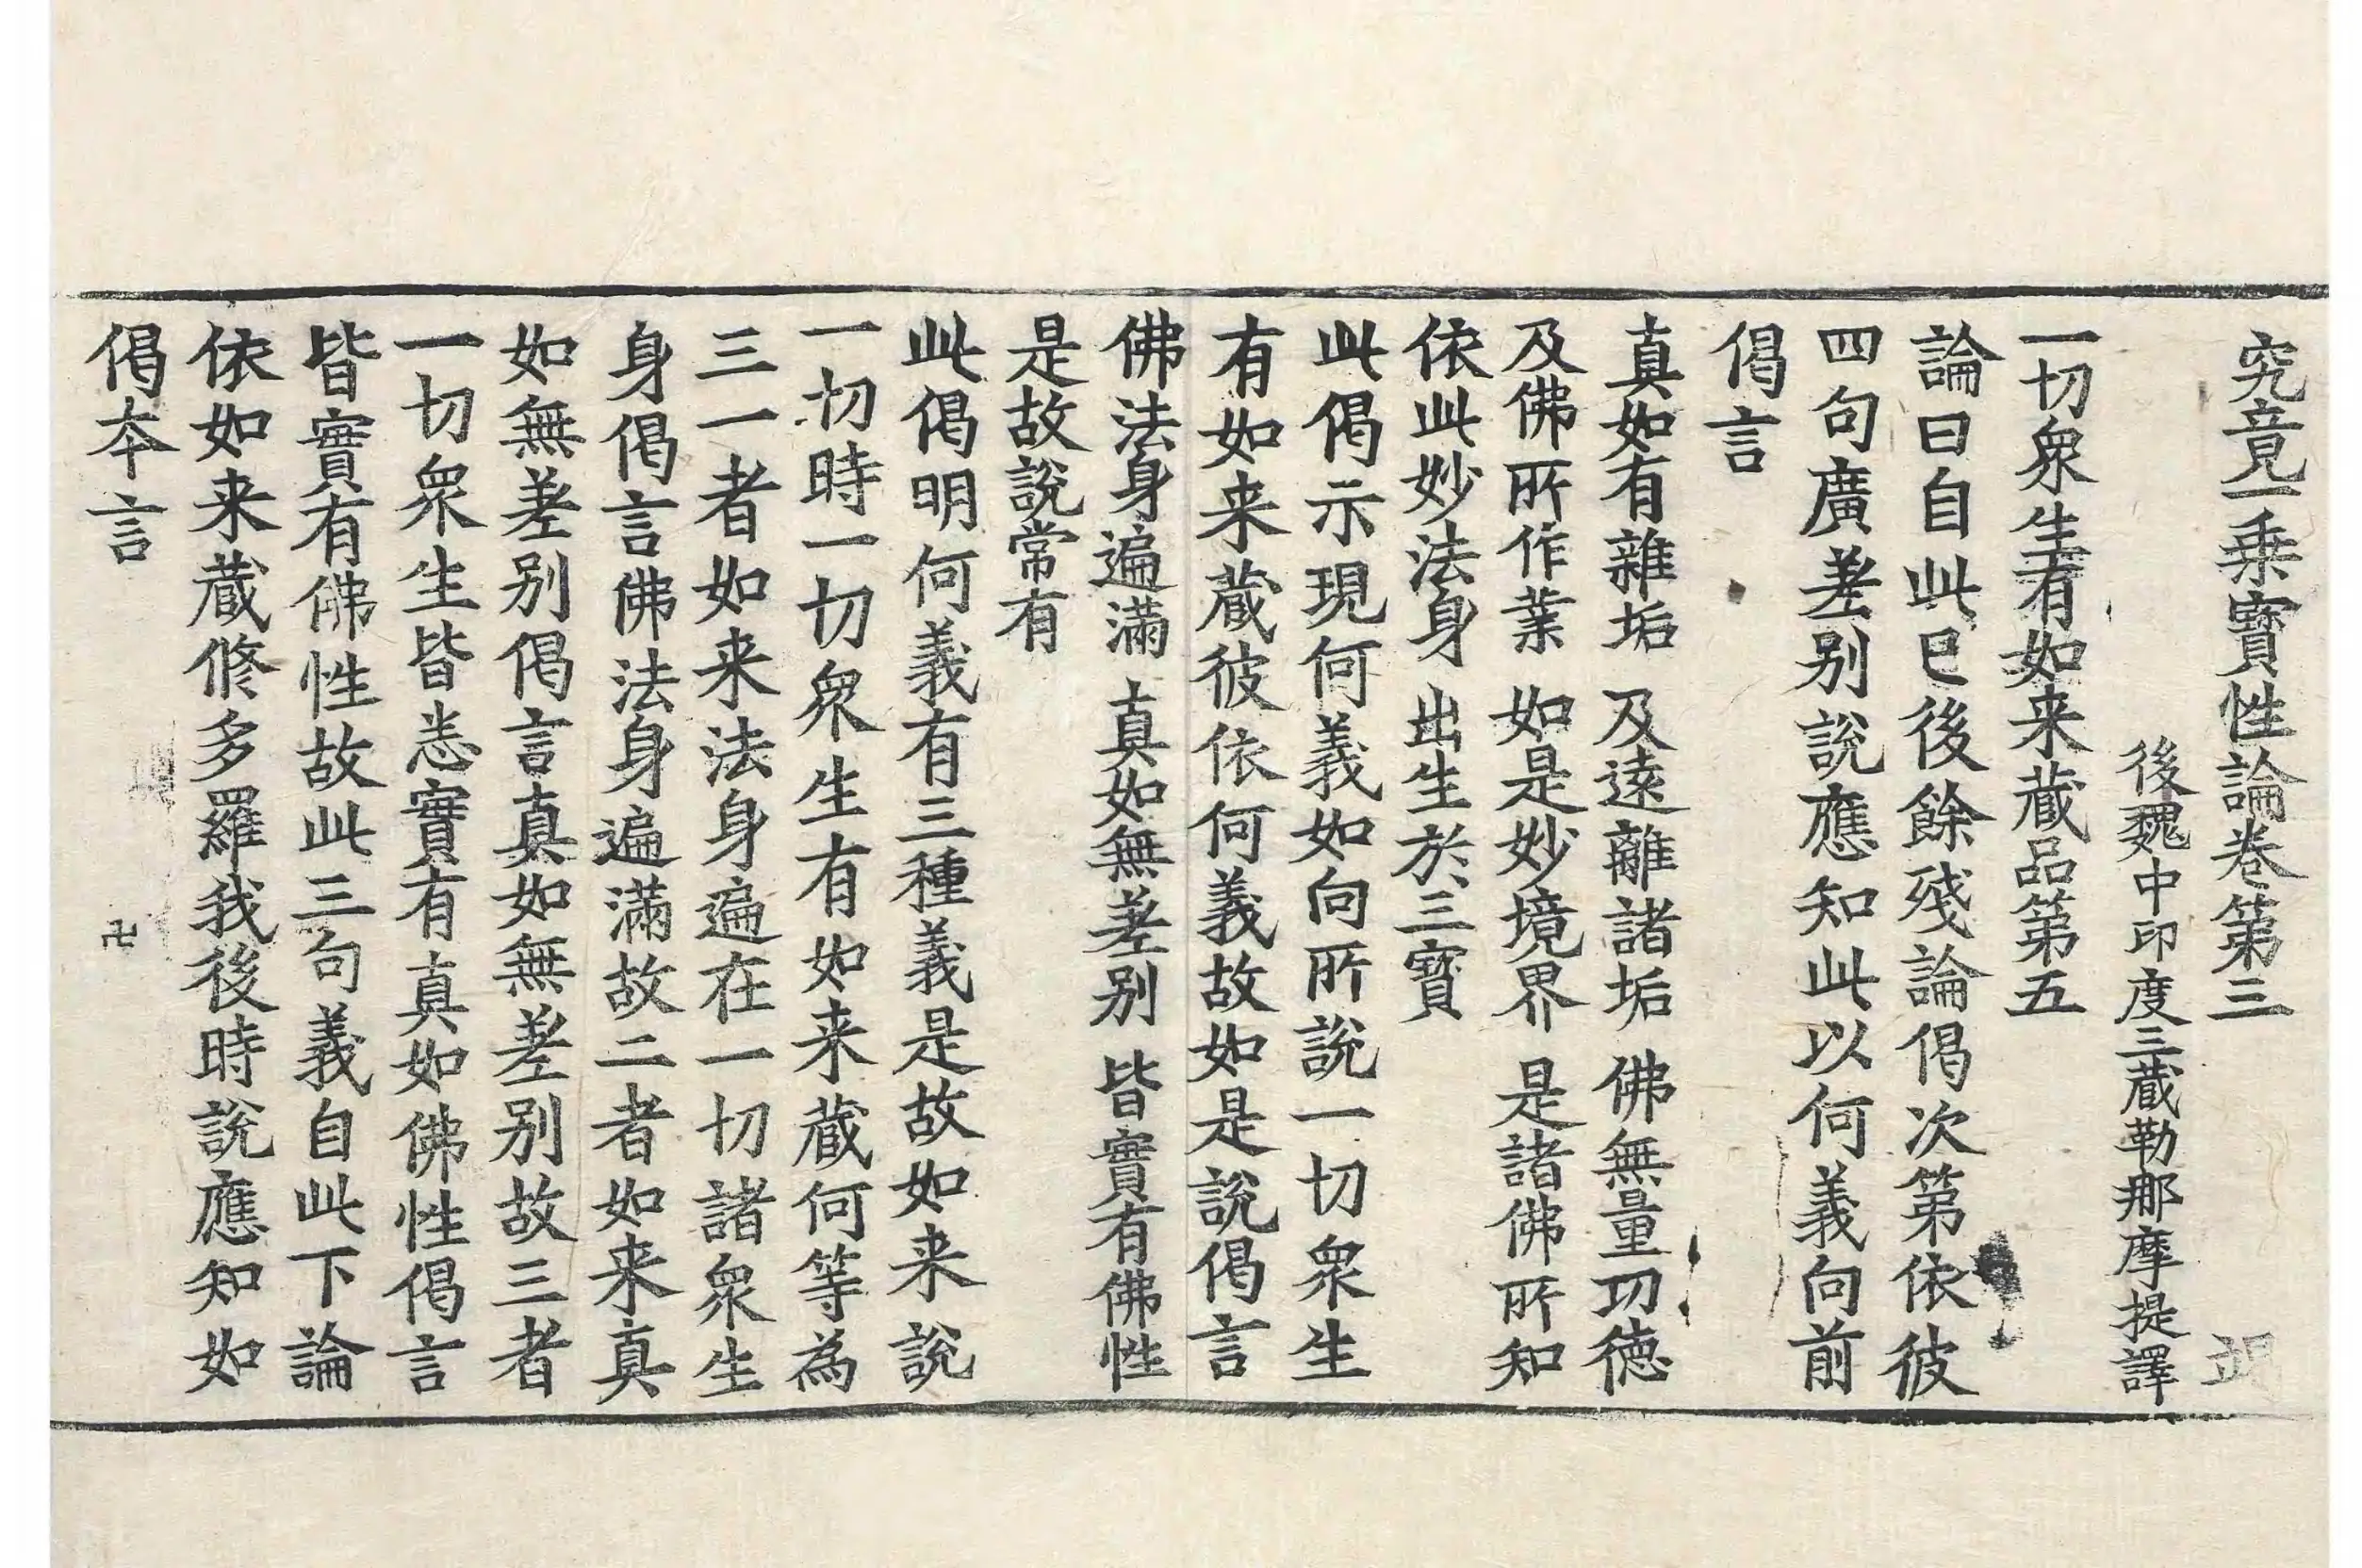 究竟一乗寳性論卷第三
後魏中印度三藏勒那摩提譯
一切衆生有如来藏品第五
論曰自此已後餘殘論偈次第依彼
四句廣差别說應知此以何義向前
偈言
真如有雜垢 及遠離諸垢 佛無量功德
及佛所作業 如是妙境界 是諸佛所知
依此妙法身 出生於三寳
此偈示現何義如向所說一切衆生
有如来藏彼依何義故如是說偈言
佛法身遍滿 真如無差别 皆實有佛性
是故說常有
此偈明何義有三種義是故如来說
一切時一切衆生有如来藏何等為
三一者如来法身遍在一切諸衆生
身偈言佛法身遍滿故二者如来真
如無差别偈言真如無差别故三者
一切衆生皆悉實有真如佛性偈言
皆實有佛性故此三句義自此下論
依如来藏修多羅我後時說應知如
偈本言
卍